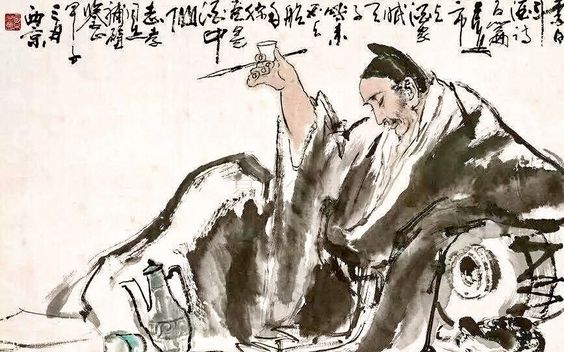 李白
斗酒诗
百篇
长安
市
上
酒家
眠
天
子
呼来
不上
船
自称
臣是
酒中
仙
志孝
同志
補壁
甲子
三月
西京